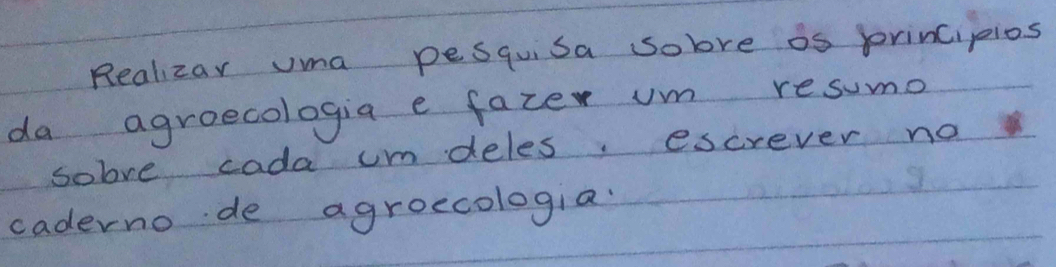 Realizar uma pesquisa sobre os principios
da agroecologia e fazer um resumo
sobre cada um deles. escrever no
caderno de agroecologia.